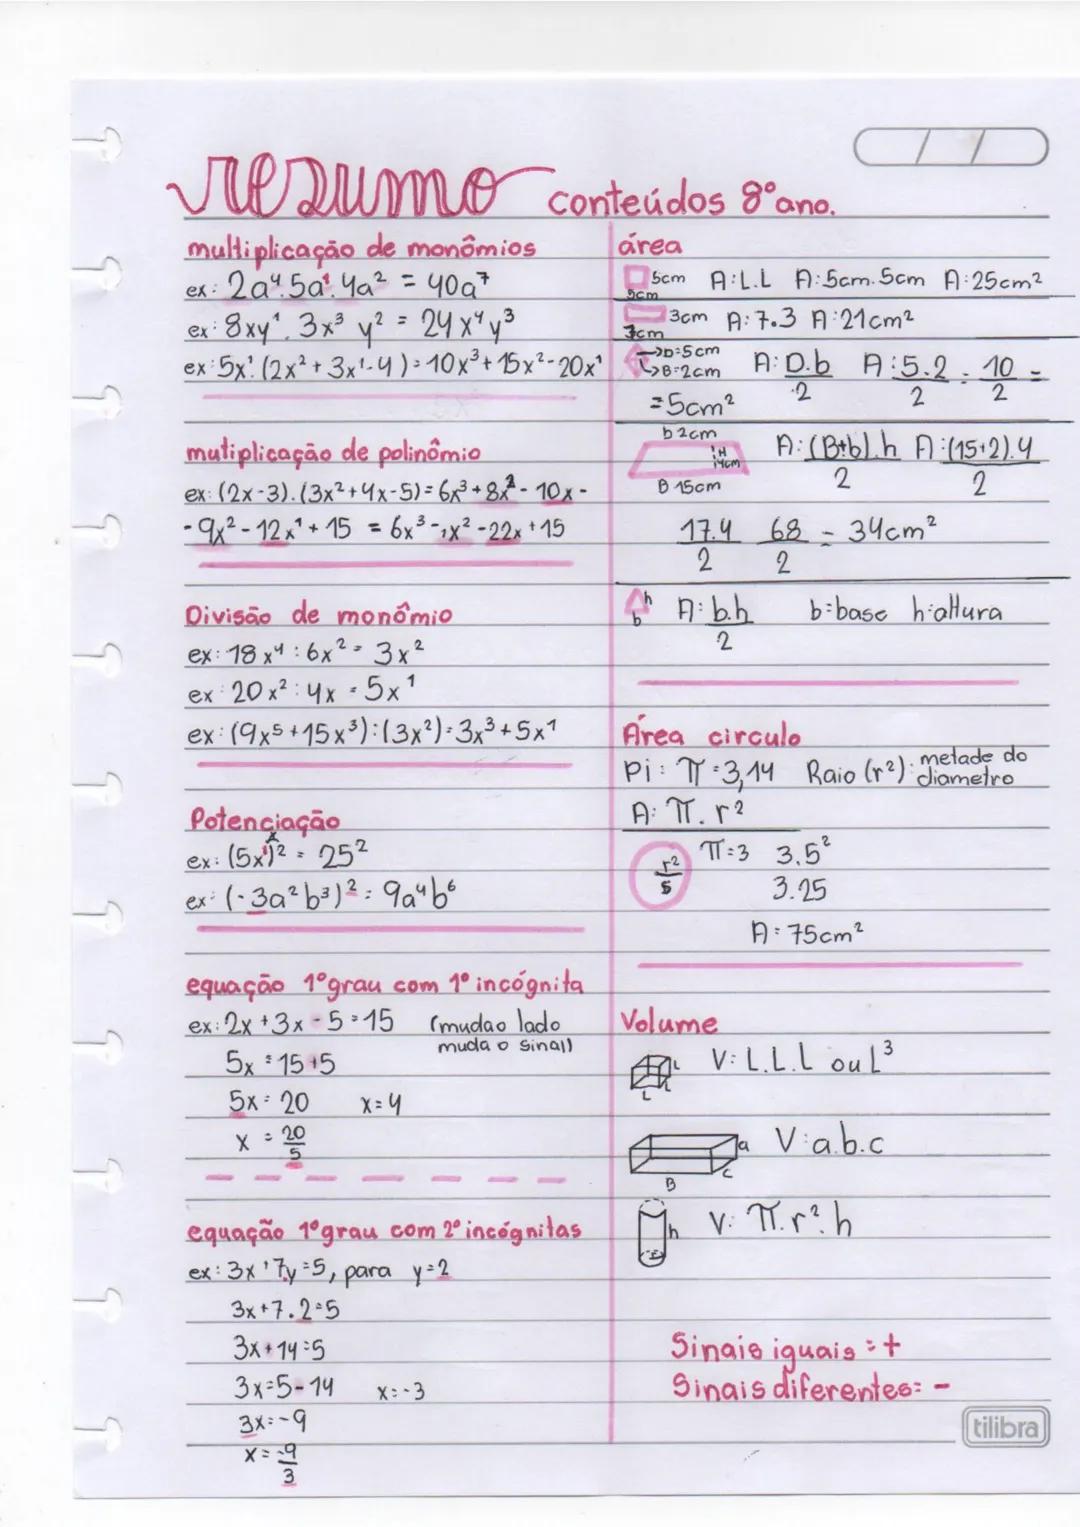 resumo conteúdos 8º ano.
multiplicação de monômios
ex: 2a⁴.5a¹.4a² = 40a⁷
ex: 8xy¹.3x³y² = 24x⁴y³
ex: 5x¹.(2x²+3x¹-4)=10x³+15x²-20x¹
mutiplicação de polinômio
ex: (2x-3).(3x²+4x-5)=6x³+8x²-10x-
-9x²-12x¹+15 = 6x³-1x²-22x+15
Divisão de monômio
ex: 18x⁴:6x²= 3x²
ex: 20x²:4x = 5x¹
ex: (9x⁵+15x³):(3x²)=3x³+5x¹
Potenciação
ex: (5x¹)² = 25²
ex: (-3a²b³)² = 9a⁴b⁶
equação 1º grau com 1º incógnita
ex: 2x+3x-5=15 (mudao lado
muda o sinal)
5x = 15+5
5x = 20 x=4
x = 20
5
equação 1º grau com 2º incógnitas
ex: 3x+7y=5, para y=2
3x+7.2=5
3x+14=5
3x=5-14 x=-3
3x=-9
x = -9
3
área
5cm A:L.L A:5cm.5cm A:25cm²
5cm
3cm A: 7.3 A:21cm²
7cm
→D=5cm
→B=2cm A: D.b A:5.2 = 10 =
2 2 2
=5cm²
b 2cm
H
4cm A:(B+b).h A:(15+2).4
B 15cm 2 2
17.4 68 = 34cm²
2 2
h A: b.h b=base h=altura
b 2
Área circulo
Pi: π=3,14 Raio (r²): metade do
diametro
A: π.r²
r² π=3 3.5²
5 3.25
A = 75cm²
Volume
L V: L.L.L ou L³
L
L
a V:a.b.c
C
B
h V: π.r².h
r
Sinais iguais = +
Sinais diferentes: -
tilibra